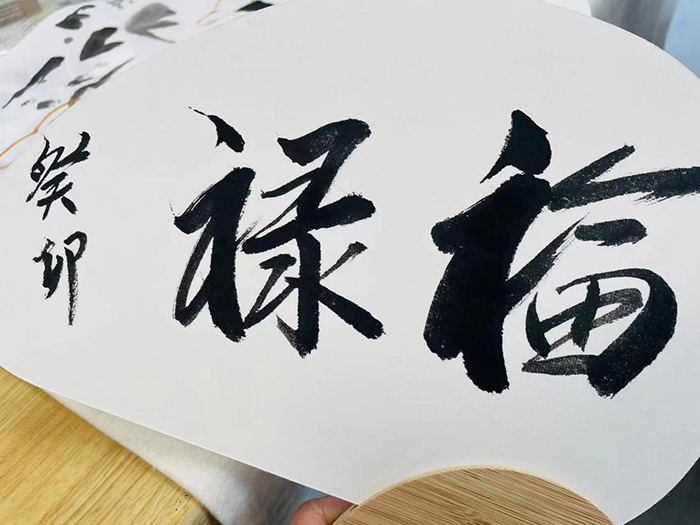 福禄
癸卯